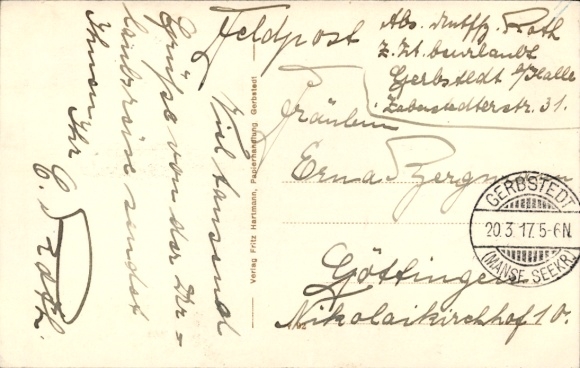 Feldpost
Abs. Untffz. Roth
z. Zt. beurlaubt
Gerbstedt b/Halle
Zabenstedterstr. 31.
Fräulein
Erna Bergmann
Göttingen
Nikolaikirchhof 10.
Viel tausend
Grüße von der Ur-
laubsreise sendet
Ihnen
Ihr
E. Roth.
Verlag Fritz Hartmann, Papierhandlung, Gerbstedt
GERBSTEDT
20.3.17.5-6N.
(MANSF. SEEKR.)